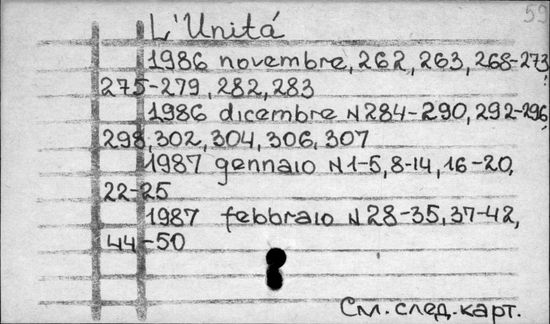 59
L'Unitá
1986 novembre, 262, 263, 268-273,
275-279, 282, 283
1986 dicembre N 284-290, 292-296,
298, 302, 304, 306, 307
1987 gennaio N 1-5, 8-14, 16-20,
22-25
1987 febbraio N 28-35, 37-42,
44-50
См. след. карт.